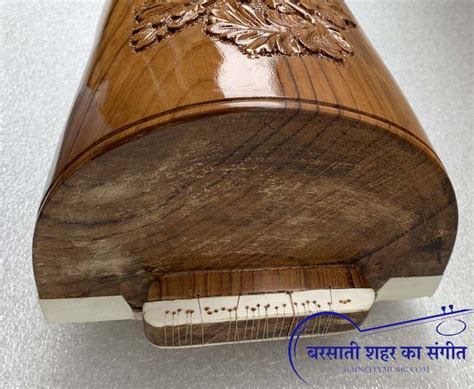 बरसाती शहर का संगीत
RAINCITYMUSIC.COM